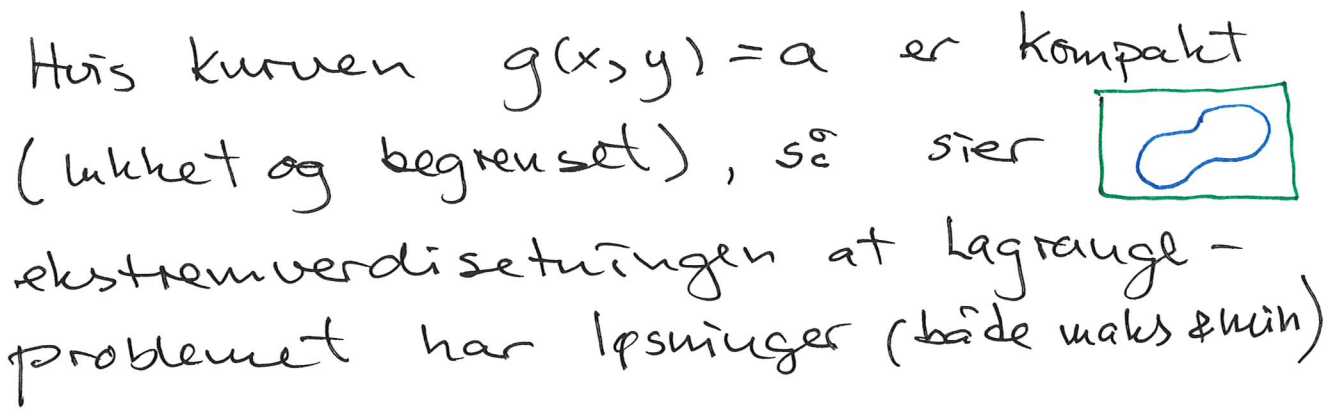 Hvis kurven g(x,y) = a er kompakt
(lukket og begrenset), så sier
ekstremverdisetningen at Lagrange-
problemet har løsninger (både maks & min)